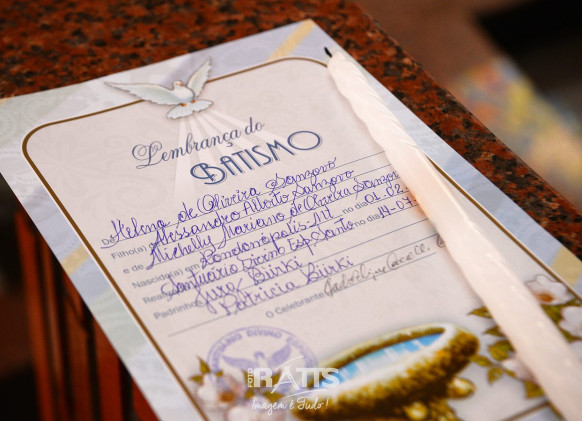 Lembrança do
BATISMO
De Helena de Oliveira Sanzovo
Filho(a) Alessandro Alberto Sanzovo
e de Michelly Mariano de Oliveira Sanzovo
Nascido(a) em Rondonópolis-MT no dia 01.02.
Santuário Divino Esp. Santo no dia 14.07.
Padrinhos Iura Bürki
Patricia Bürki
O Celebrante
SANTUÁRIO DIVINO
FOTO RATTS
Imagem é Tudo!